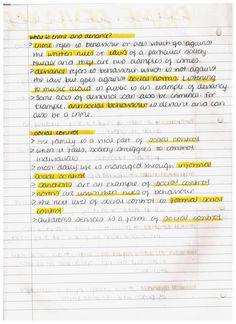 what is crime and deviance?
> crime refers to behaviour or acts which go against
the written rules or laws of a particular society.
Murder and theft are two examples of crimes.
> deviance refers to behaviour which is not against
the law but goes against social norms. Listening
to music aloud in public is an example of deviancy.
> Some acts of deviance can also be criminal. For
example, anti social behaviour is deviant and can
also be a crime.
social control
> The family is a vital part of social control
> when it fails, society struggles to control
individuals
> most daily life is managed through informal
social control
> sanctions are an example of social control
> norms are unwritten rules of behaviour
> the next level of social control is formal social
control
> childrens services is a form of social control